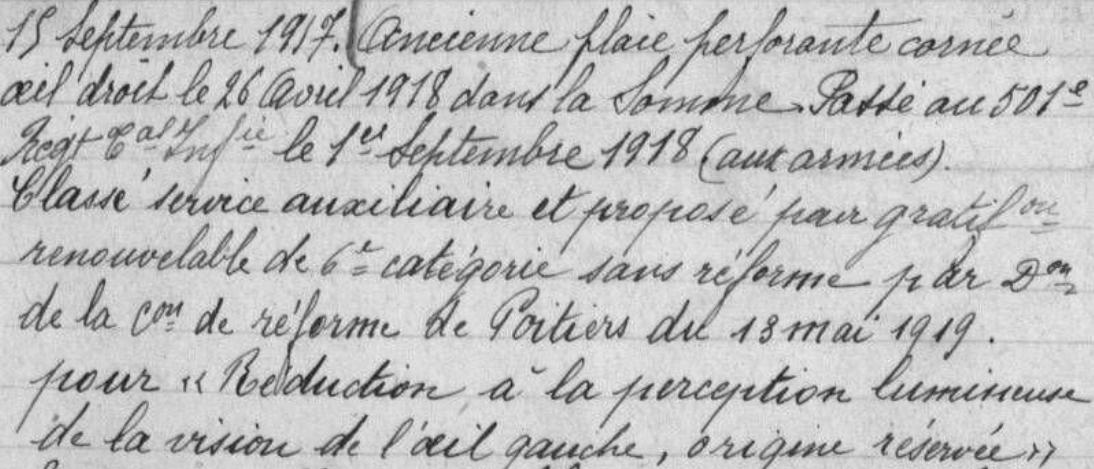 15 Septembre 1917. (Ancienne plaie perforante cornée
œil droit le 26 Avril 1918 dans la Somme. Passé au 501e
Régt Cal Infie le 1er Septembre 1918 (aux armées).
Classé service auxiliaire et proposé pour gratifon
renouvelable de 6e catégorie sans réforme par Don
de la Con de réforme de Poitiers du 13 mai 1919.
pour « Réduction à la perception lumineuse
de la vision de l'œil gauche, origine réservée »